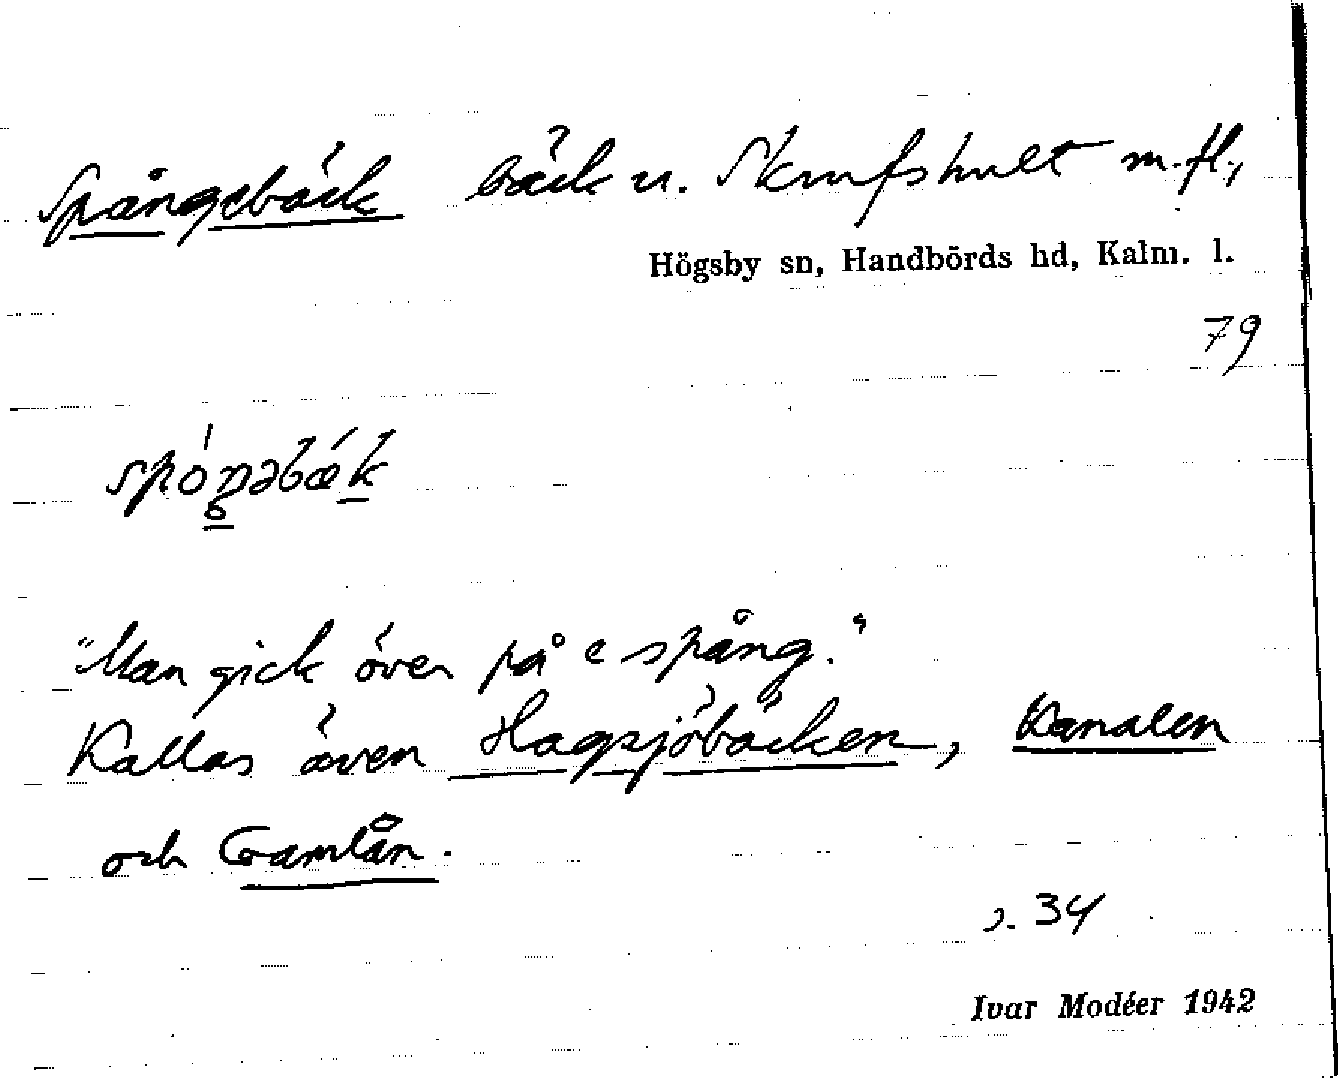 Spångebäck bäck u. Skrufshult m.fl.,
Högsby sn, Handbörds hd, Kalm. l.
79
"Man gick över på e spång."
Kallas även Hagsjöbäcken, Kanalen
och Gamlån.
s. 34
Ivar Modéer 1942